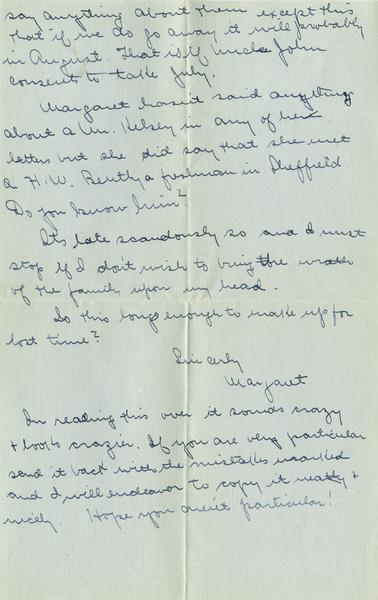 say anything about them except this
that if we do go away it will probably
in August. That is if Uncle John
consents to take July.
Margaret hasn't said anything
about a Mr. Kelsey in any of her
letters but she did say that she met
a H.W. Bently a freshman in Sheffield.
Do you know him?
Its late scandously so and I must
stop if I don't wish to bring the wrath
of the family upon my head.
Is this long enough to make up for
lost time?
Sincerely
Margaret
In reading this over it sounds crazy
+ looks crazier. If you are very particular
send it back with the mistakes marked
and I will endeavor to copy it neatly +
nicely. Hope you aren't particular!